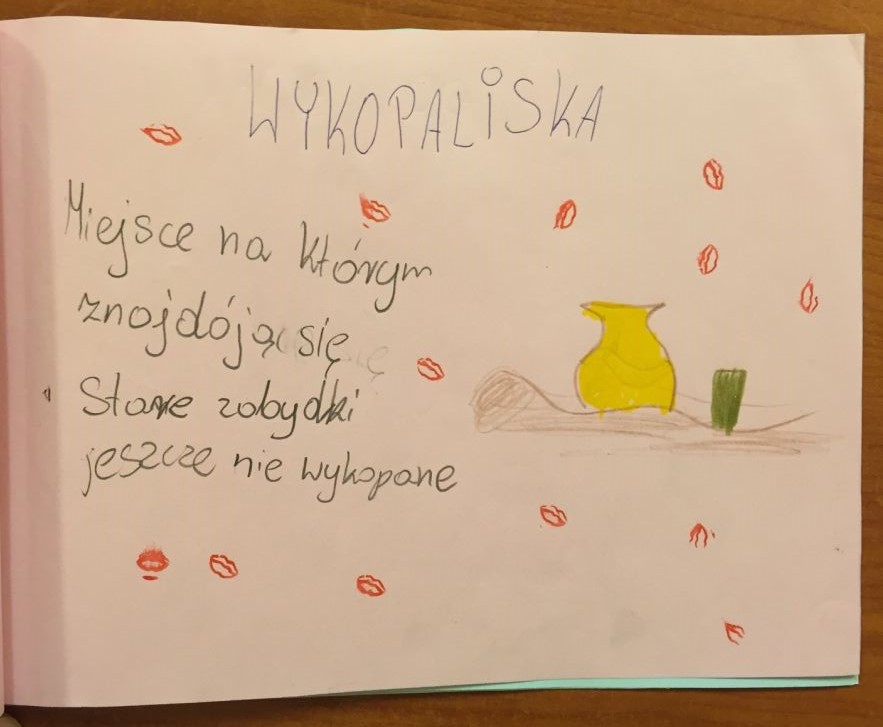 WYKOPALISKA
Miejsce na którym
znojdóją się
Stare zobydki
jeszcze nie wykopane